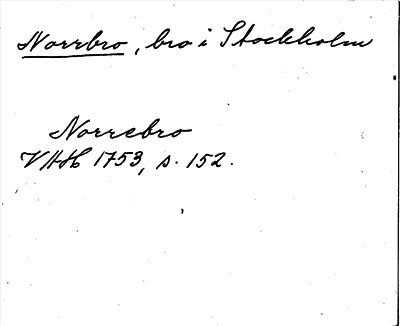 Norrbro, bro i Stockholm
Norrebro
VHH 1753, s. 152.